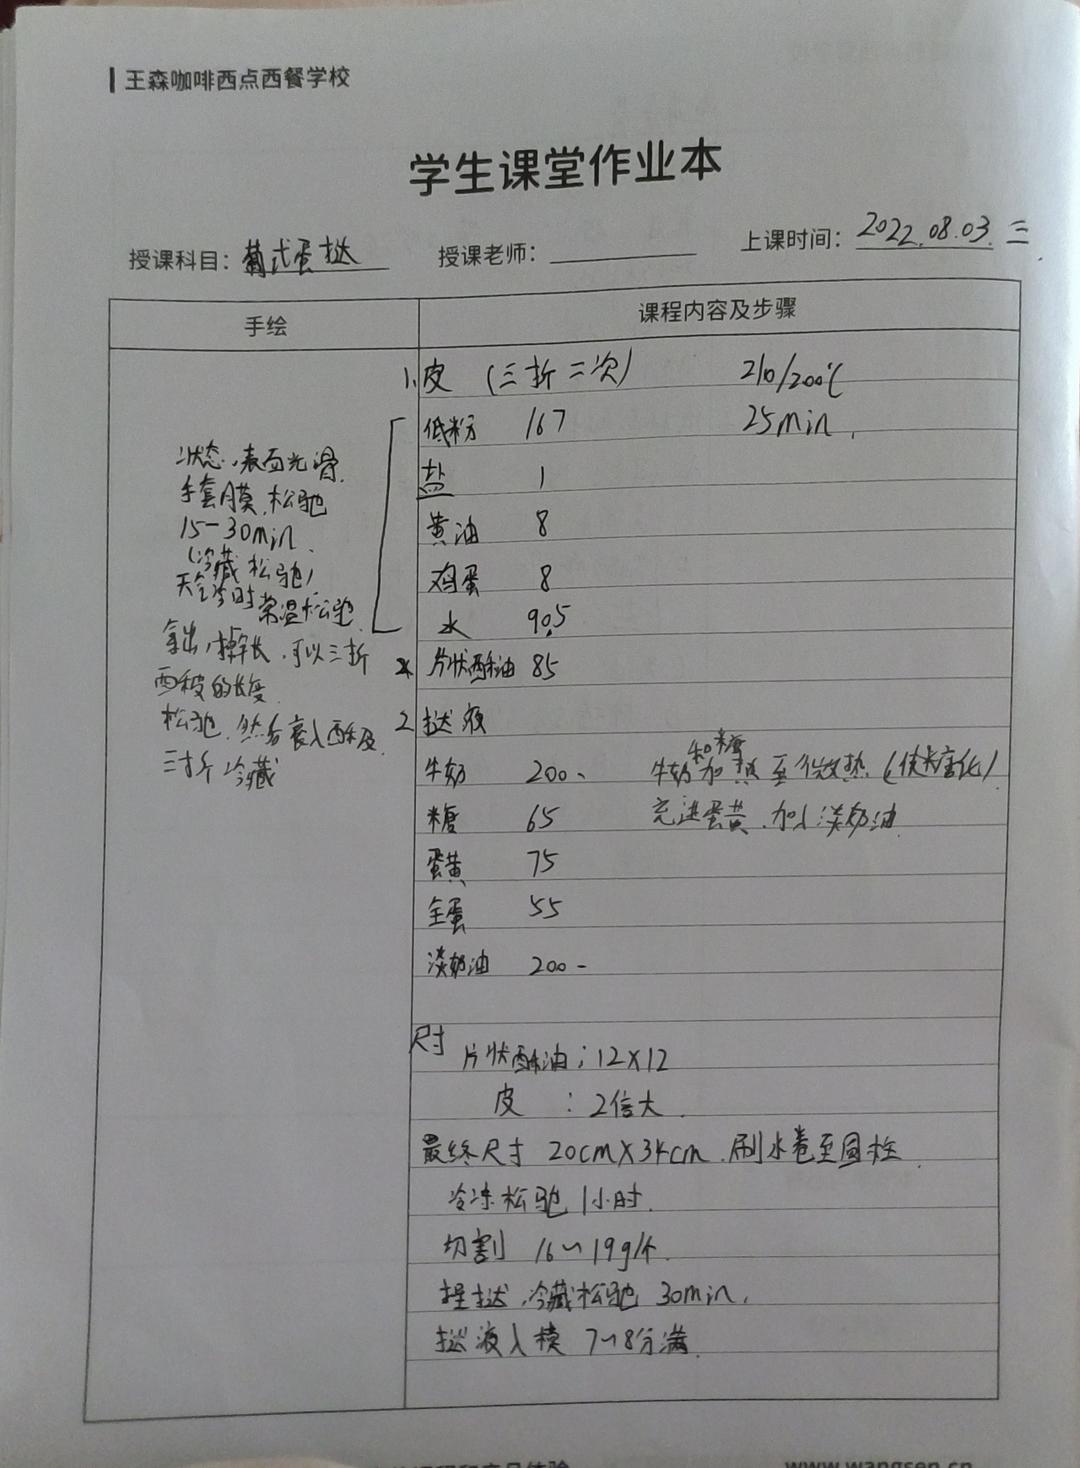 王森咖啡西点西餐学校
学生课堂作业本
授课科目：葡式蛋挞 授课老师： 上课时间：2022.08.03. 三
手绘
课程内容及步骤
状态，表面光滑.
手套膜，松弛
15-30min.
(冷藏松弛)
天冷时常温松弛.
拿出，擀长，可以三折
西被的长度
松弛，然后裹入酥皮
三折冷藏
1.皮 (三折三次) 210/200℃
低粉 167 25min.
盐 1
黄油 8
鸡蛋 8
水 90.5
片状酥油 85
2 挞液
牛奶 200- 牛奶和糖加热至微热 (使糖化)
糖 65 充进蛋黄，加入淡奶油
蛋黄 75
全蛋 55
淡奶油 200-
尺寸
片状酥油：12×12
皮 ：2倍大.
最终尺寸 20cm×34cm. 刷水卷至圆柱.
冷冻松弛 1小时.
切割 16~19g/个.
捏挞，冷藏松弛 30min.
挞液入模 7~8分满.
www.wangsen.cn